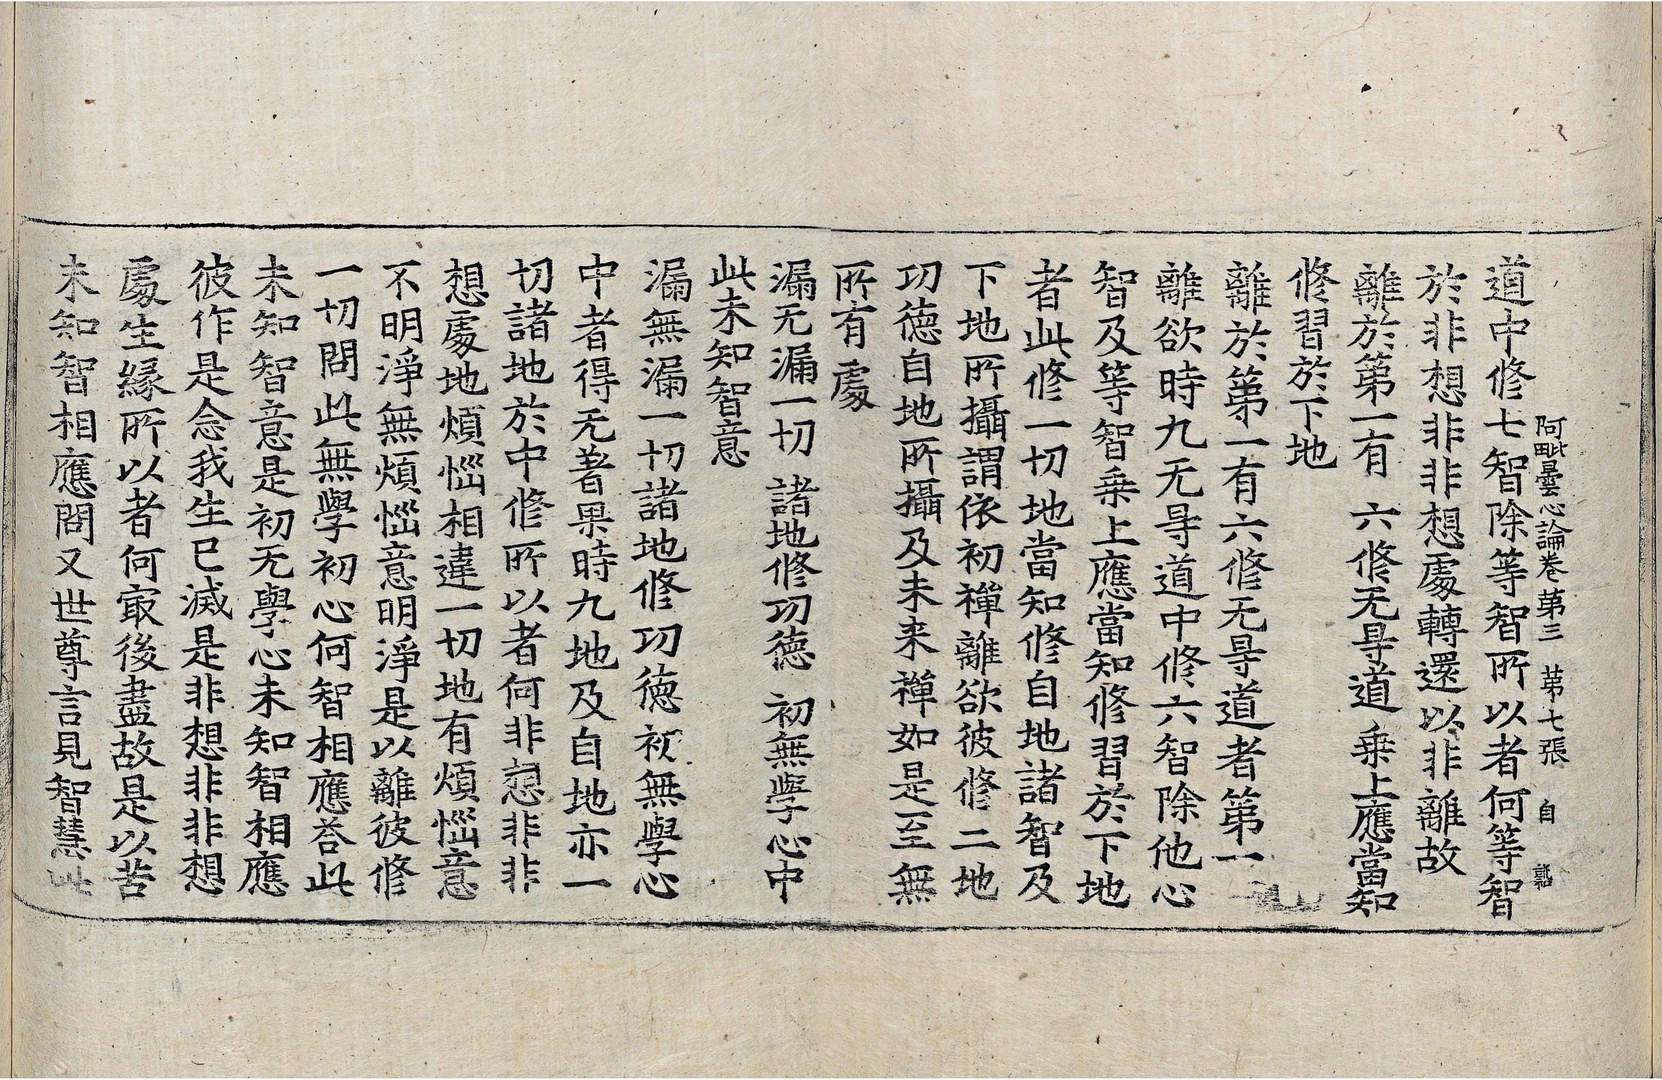 阿毗曇心論卷苐三 苐七張 自
道中修七智除等智所以者何等智
於非想非非想處轉還以非離故
離於第一有 六修无㝵道 乗上應當知
修習於下地
離於第一有六修无㝵道者第一
離欲時九无㝵道中修六智除他心
智及等智乗上應當知修習於下地
者此修一切地當知修自地諸智及
下地所攝謂依初禪離欲彼修二地
功徳自地所攝及未来禪如是至無
所有處
漏无漏一切 諸地修功徳 初無學心中
此未知智意
漏無漏一切諸地修功徳初無學心
中者得无著果時九地及自地亦一
切諸地於中修所以者何非想非非
想處地煩惱相違一切地有煩惱意
不明淨無煩惱意明淨是以離彼修
一切問此無學初心何智相應荅此
未知智意是初无學心未知智相應
彼作是念我生已滅是非想非非想
處生緣所以者何㝡後盡故是以苦
未知智相應問又世尊言見智慧此